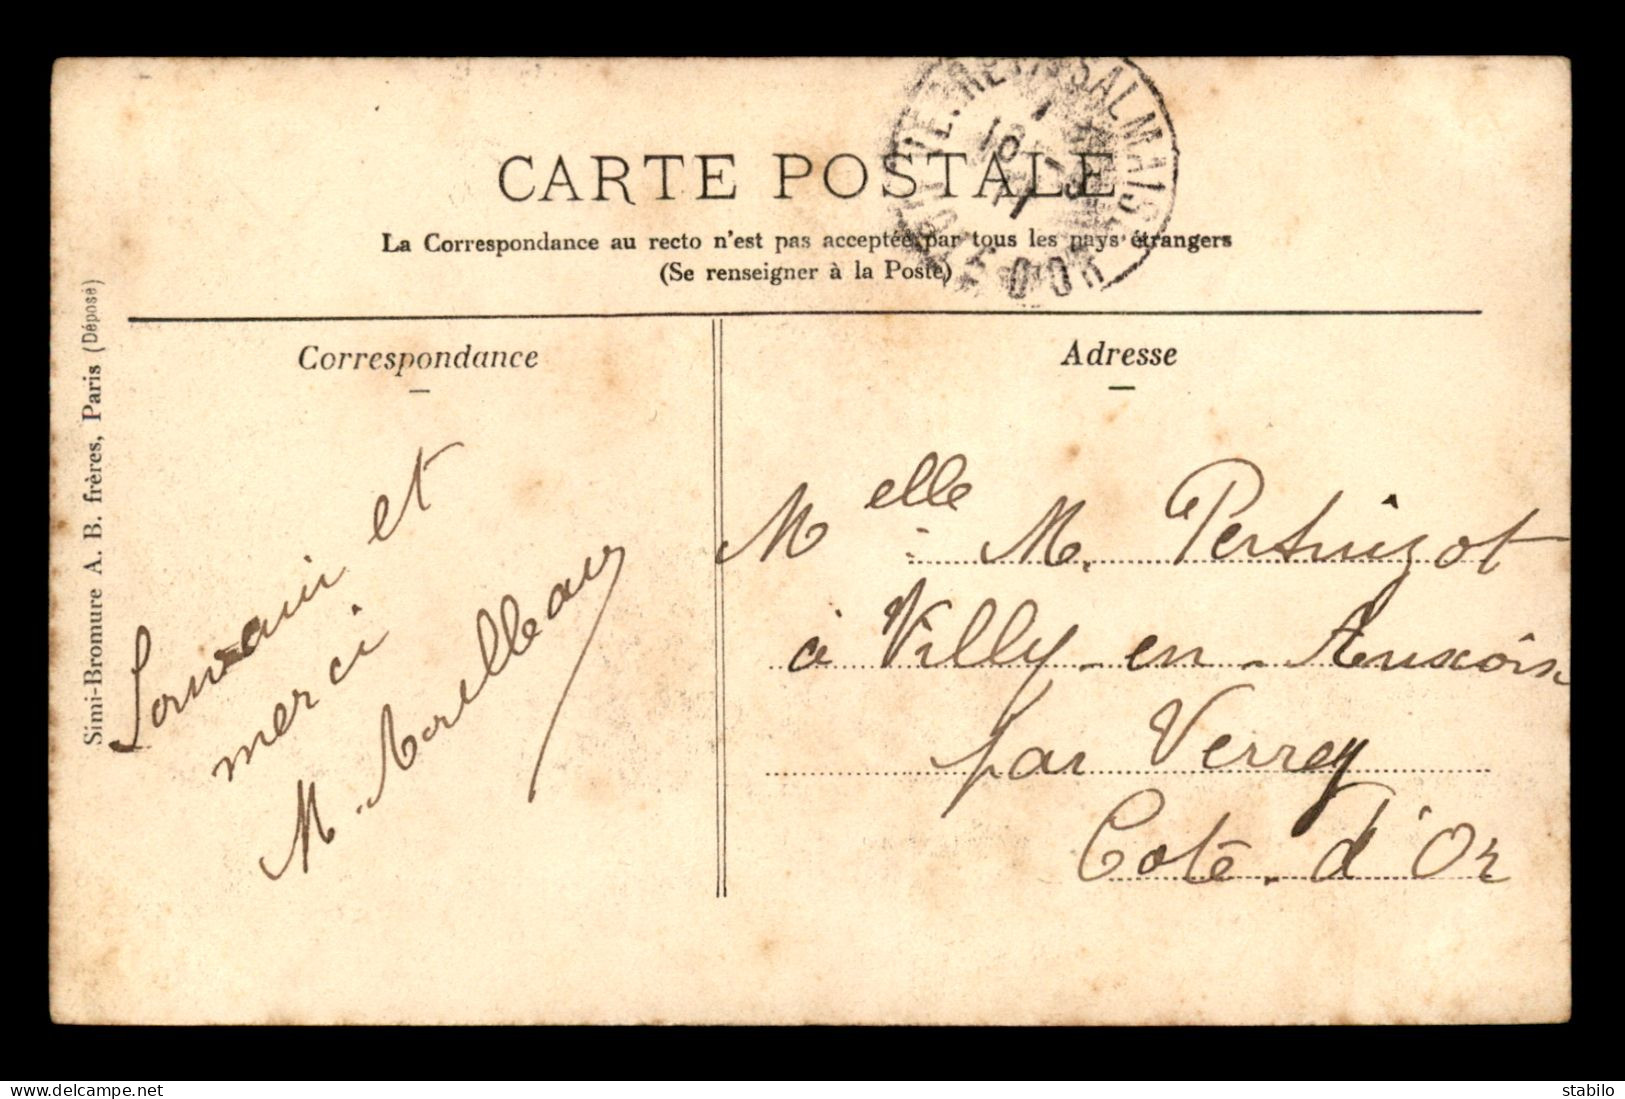 CARTE POSTALE
La Correspondance au recto n'est pas acceptée par tous les pays étrangers
(Se renseigner à la Poste)
Correspondance
Adresse
Simi-Bromure A. B. frères, Paris (Déposé)
Souvenir et
merci
M.
Melle M. Pertuizot
à Villy-en-Auxois
par Verrey
Côte-d'Or
SALMAISE
D'OR
18
delcampe.net
stabilo